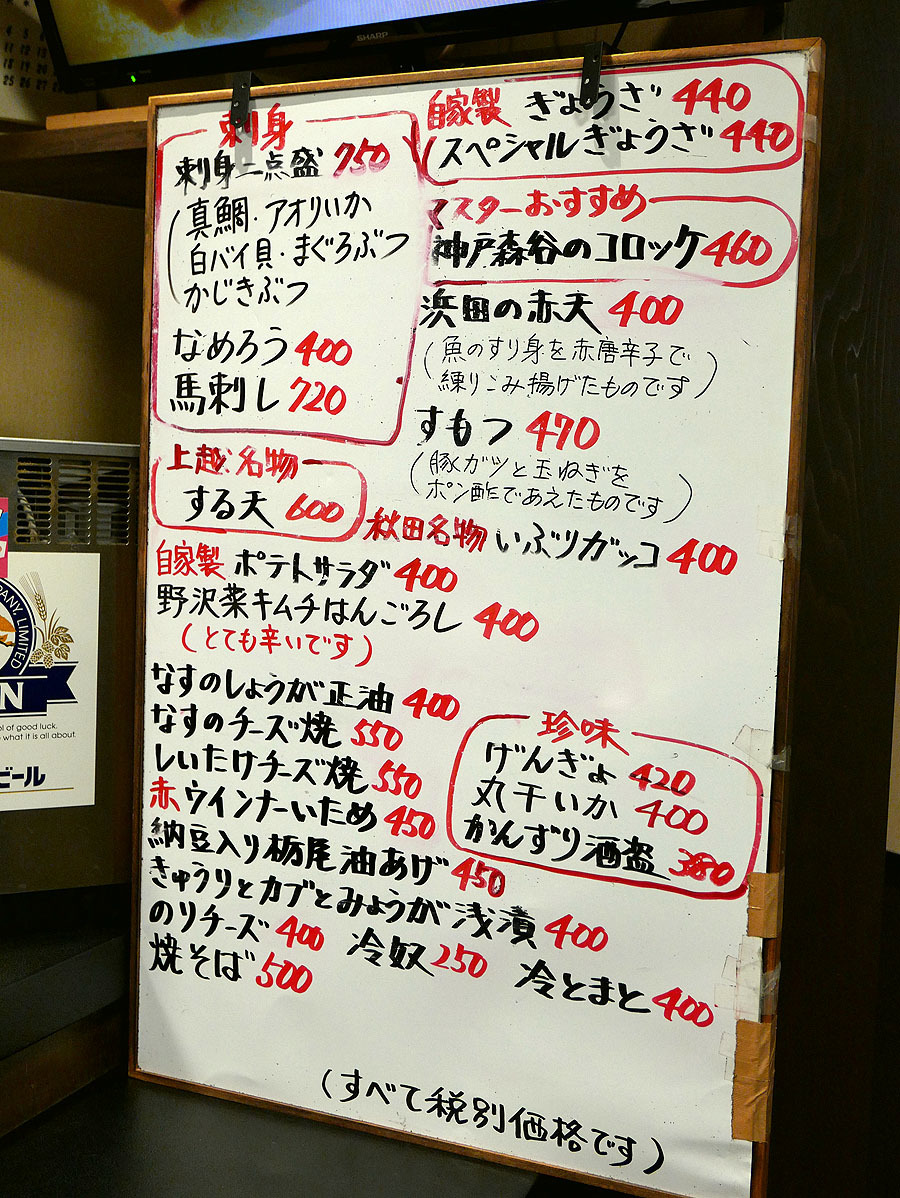 SHARP
刺身
刺身二点盛 750
(真鯛・アオリいか
白バイ貝・まぐろぶつ
かじきぶつ
なめろう 400
馬刺し 720
自家製 ぎょうざ 440
(スペシャルぎょうざ 440
マスターおすすめ
神戸森谷のコロッケ 460
浜田の赤天 400
(魚のすり身を赤唐辛子で
練りこみ揚げたものです)
すもつ 470
(豚ガツと玉ねぎを
ポン酢であえたものです)
上越名物
するてん 600
秋田名物 いぶりガッコ 400
自家製 ポテトサラダ 400
野沢菜キムチはんごろし 400
(とても辛いです)
なすのしょうが正油 400
なすのチーズ焼 550
しいたけチーズ焼 550
赤ウインナーいため 450
納豆入り栃尾油あげ 450
きゅうりとカブとみょうが浅漬 400
のりチーズ 400 冷奴 250 冷とまと 400
焼そば 500
珍味
げんぎょ 420
丸干いか 400
かんずり酒盗 380
(すべて税別価格です)
PANY, LIMITED
N
ol of good luck.
what it is all about.
ビール